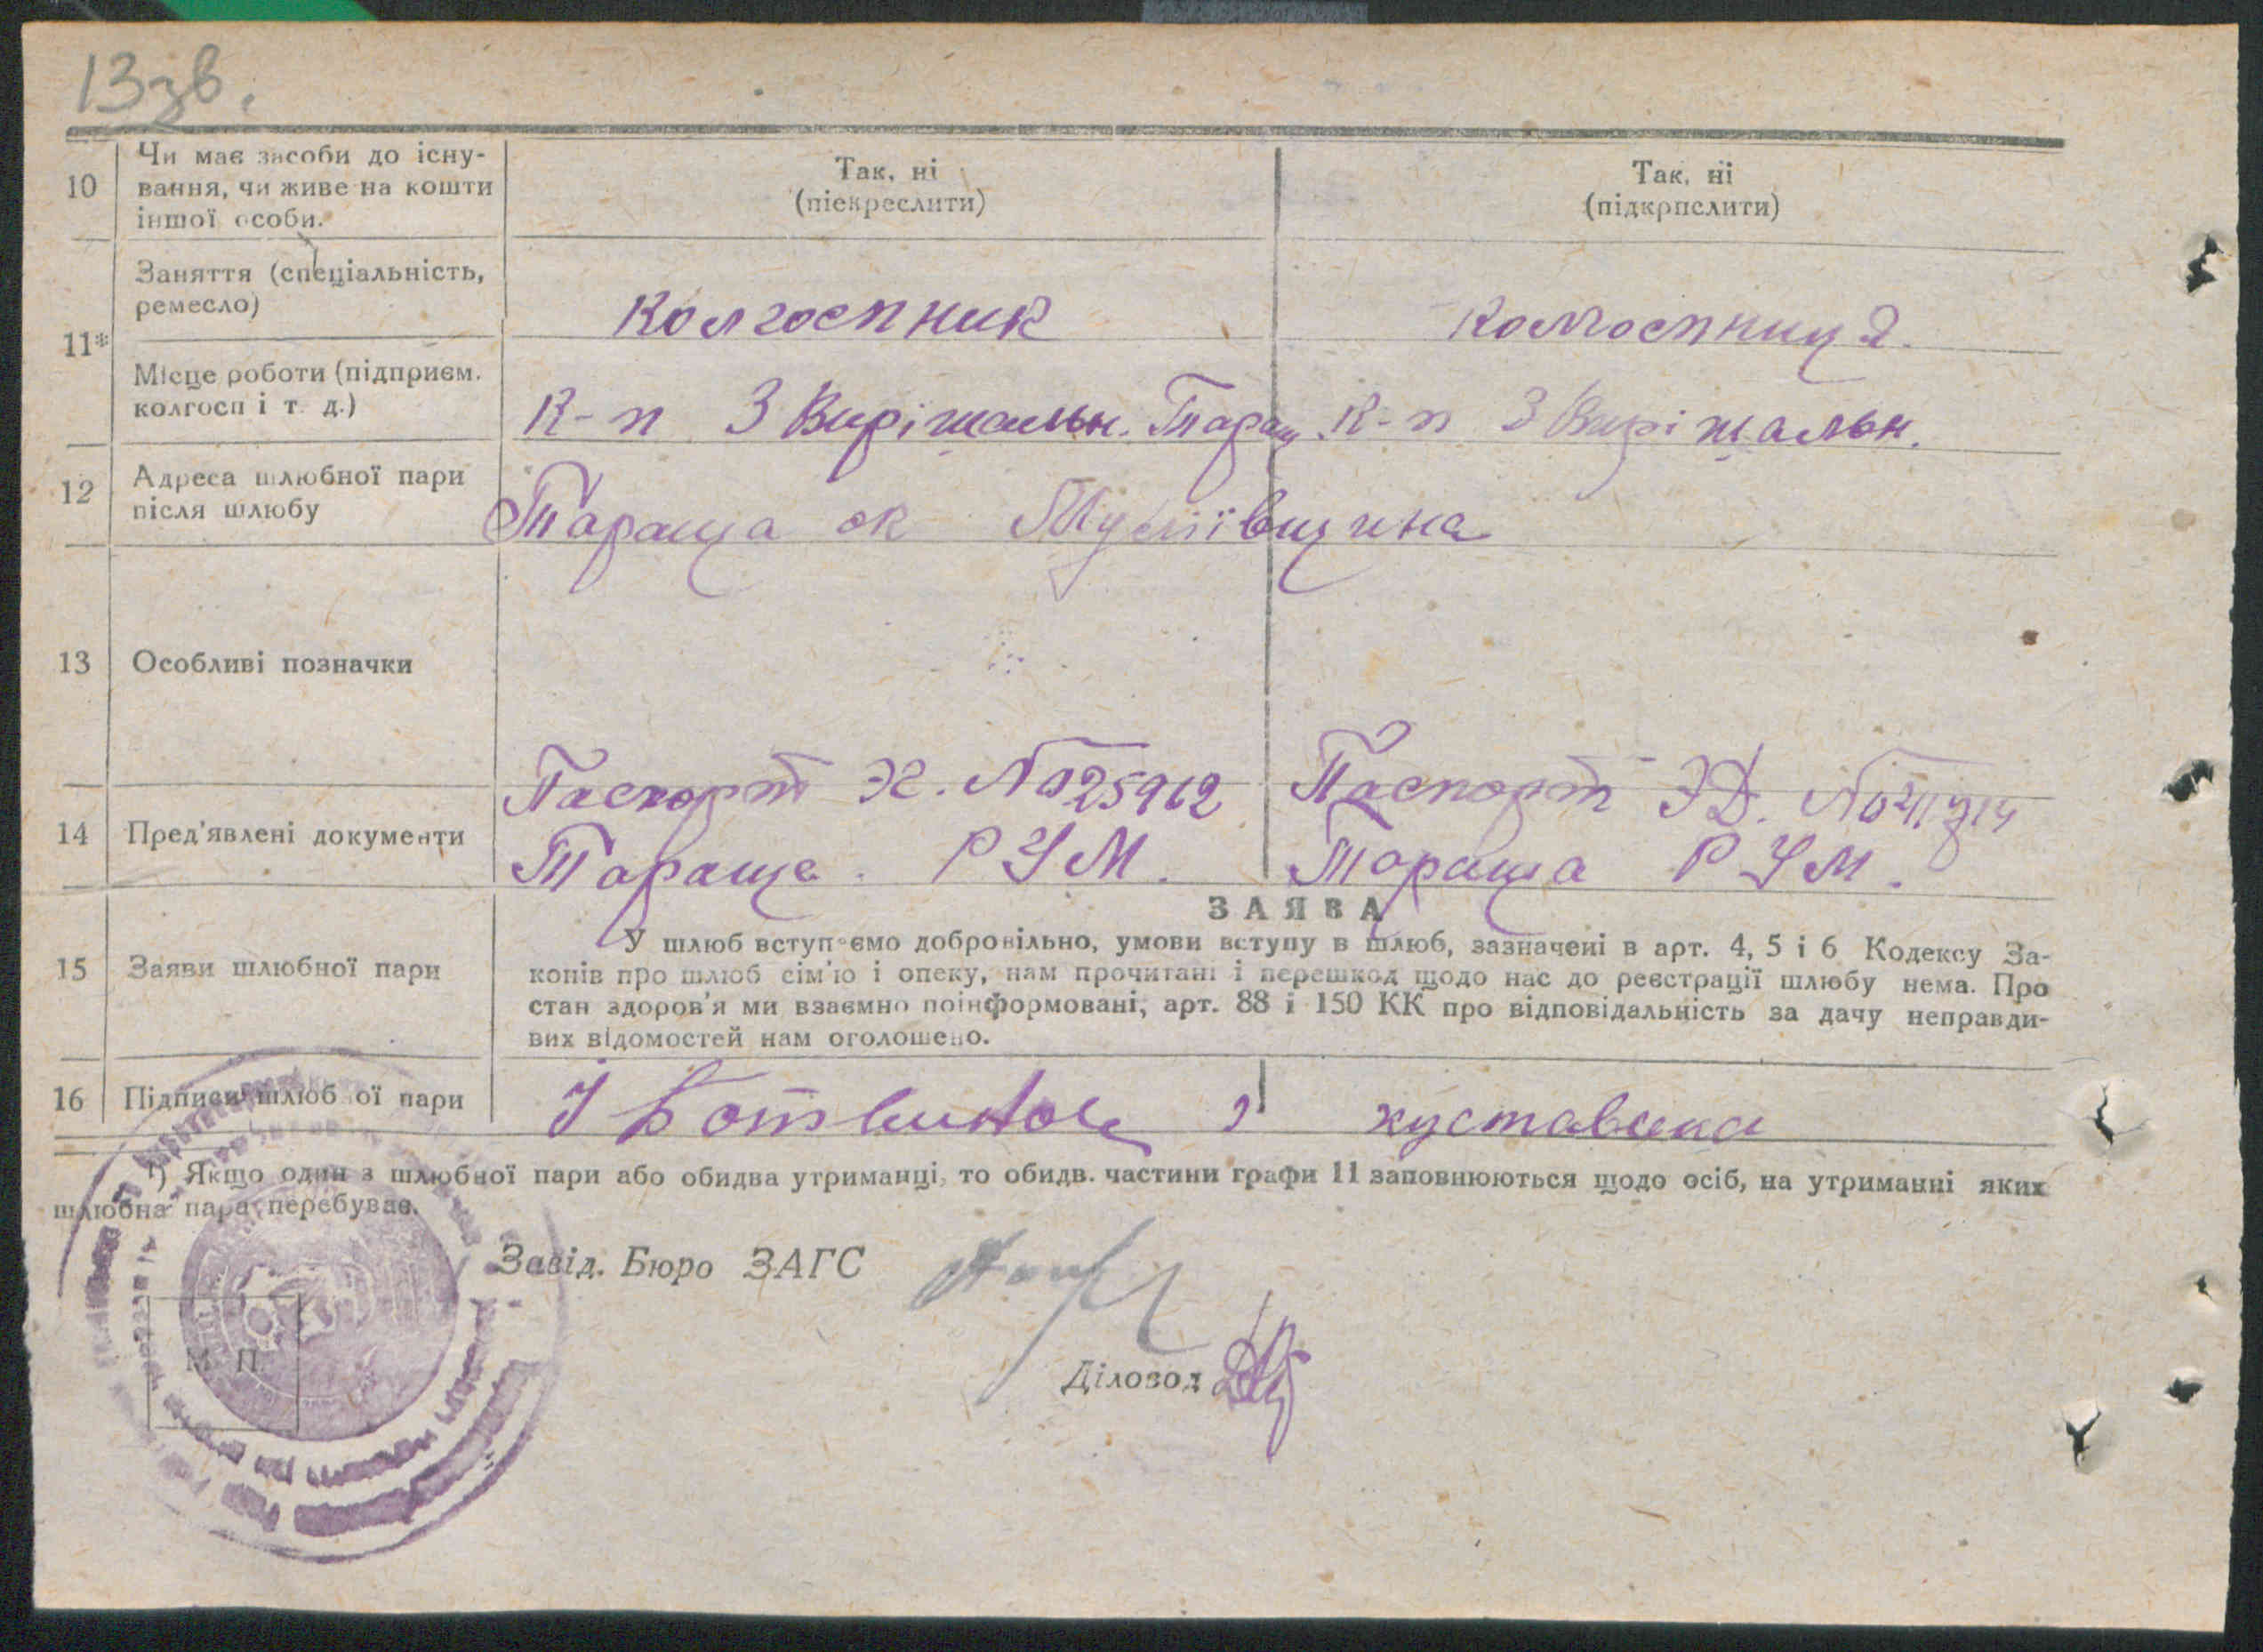 13зв.
10 Чи має засоби до існу-
вання, чи живе на кошти
іншої особи.
Так, ні
(піекреслити)
Так, ні
(підкрпслити)
11*
Заняття (спеціальність,
ремесло)
колгоспник
колгоспниця.
Місце роботи (підприєм.
колгосп і т. д.)
К-п 3 Вирішальн. Таращ
К-п 3 Вирішальн.
12 Адреса шлюбної пари
після шлюбу
Тараща ок
13 Особливі позначки
14 Пред'явлені документи
Паспорт №025912
Тараща. РУМ.
Паспорт ЭД.
Тараща РУМ.
ЗАЯВА
15 Заяви шлюбної пари
У шлюб вступаємо добровільно, умови вступу в шлюб, зазначені в арт. 4, 5 і 6 Кодексу За-
конів про шлюб сім'ю і опеку, нам прочитані і перешкод щодо нас до реєстрації шлюбу нема. Про
стан здоров'я ми взаємно поінформовані, арт. 88 і 150 КК про відповідальність за дачу неправди-
вих відомостей нам оголошено.
16 Підписи шлюб ої пари
*) Якщо один з шлюбної пари або обидва утриманці, то обидв. частини графи 11 заповнюються щодо осіб, на утриманні яких
шлюбна пара перебуває.
Завід. Бюро ЗАГС
М. П.
Діловод